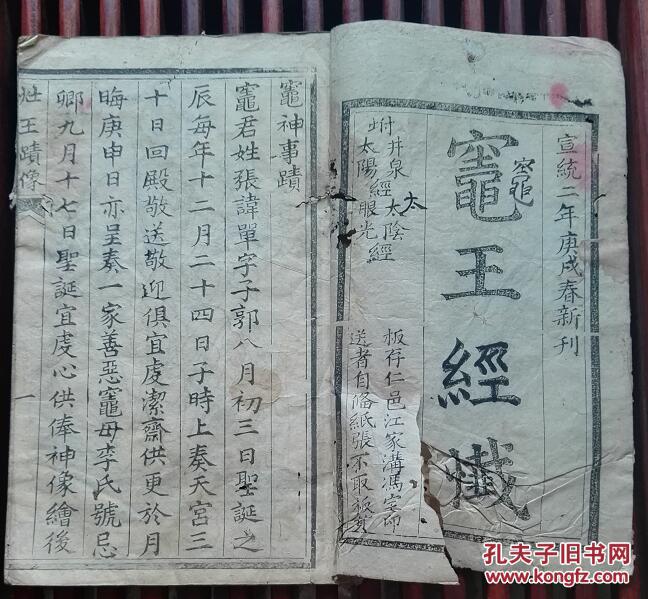 宣統二年庚戌春新刊
竈王經懺
竈
坿井泉太陰經
太陽經眼光
太
板存仁邑江家溝馮宅印
送者自偹紙張不取板
竈神事蹟
竈君姓張諱單字子郭八月初三日聖誕之
辰每年十二月二十四日子時上奏天宮三
十日回殿敬送敬迎俱宜虔潔齋供更於月
晦庚申日亦呈奏一家善惡竈母李氏號忌
卿九月十七日聖誕宜虔心供俸神像繪後
灶王蹟像
一
孔夫子旧书网
www.kongfz.com